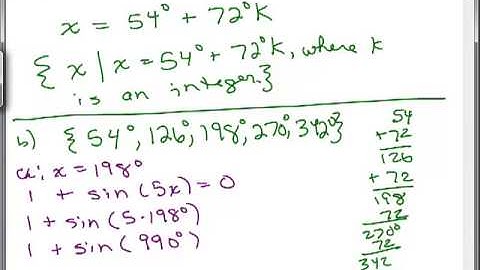 x = 54° + 72°K
{ x | x = 54° + 72°K, where k
is an integer.}
b) {54°, 126°, 198°, 270°, 342°}
ck: x = 198°
1 + sin (5x) = 0
1 + sin (5·198°)
1 + sin (990°)
54
+72
126
+ 72
198
72
270°
72
342